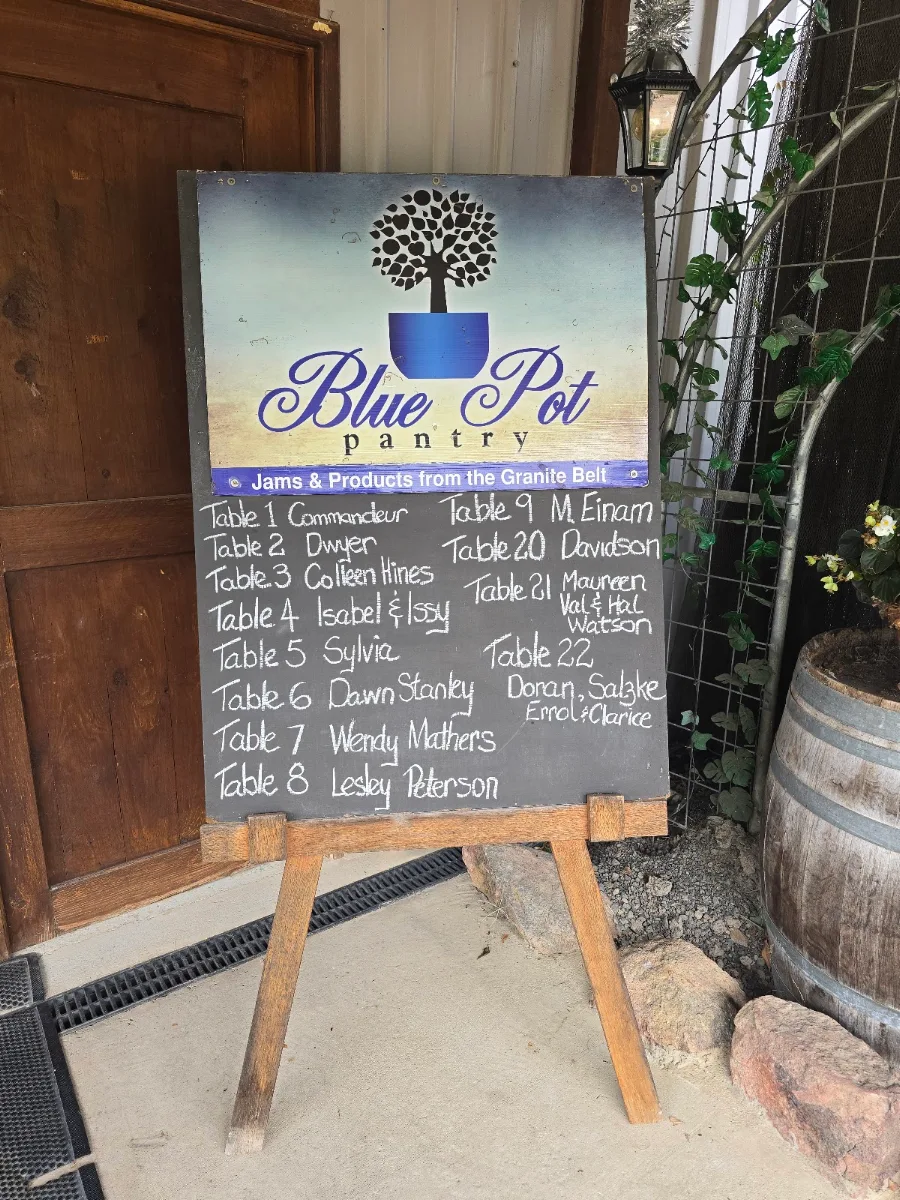 Blue Pot
pantry
Jams & Products from the Granite Belt
Table 1 Commandeur
Table 2 Dwyer
Table 3 Colleen Hines
Table 4 Isabel & Issy
Table 5 Sylvia
Table 6 Dawn Stanley
Table 7 Wendy Mathers
Table 8 Lesley Peterson
Table 9 M. Einam
Table 20 Davidson
Table 21 Maureen
Val & Hal
Watson
Table 22
Doran, Salzke
Errol & Clarice